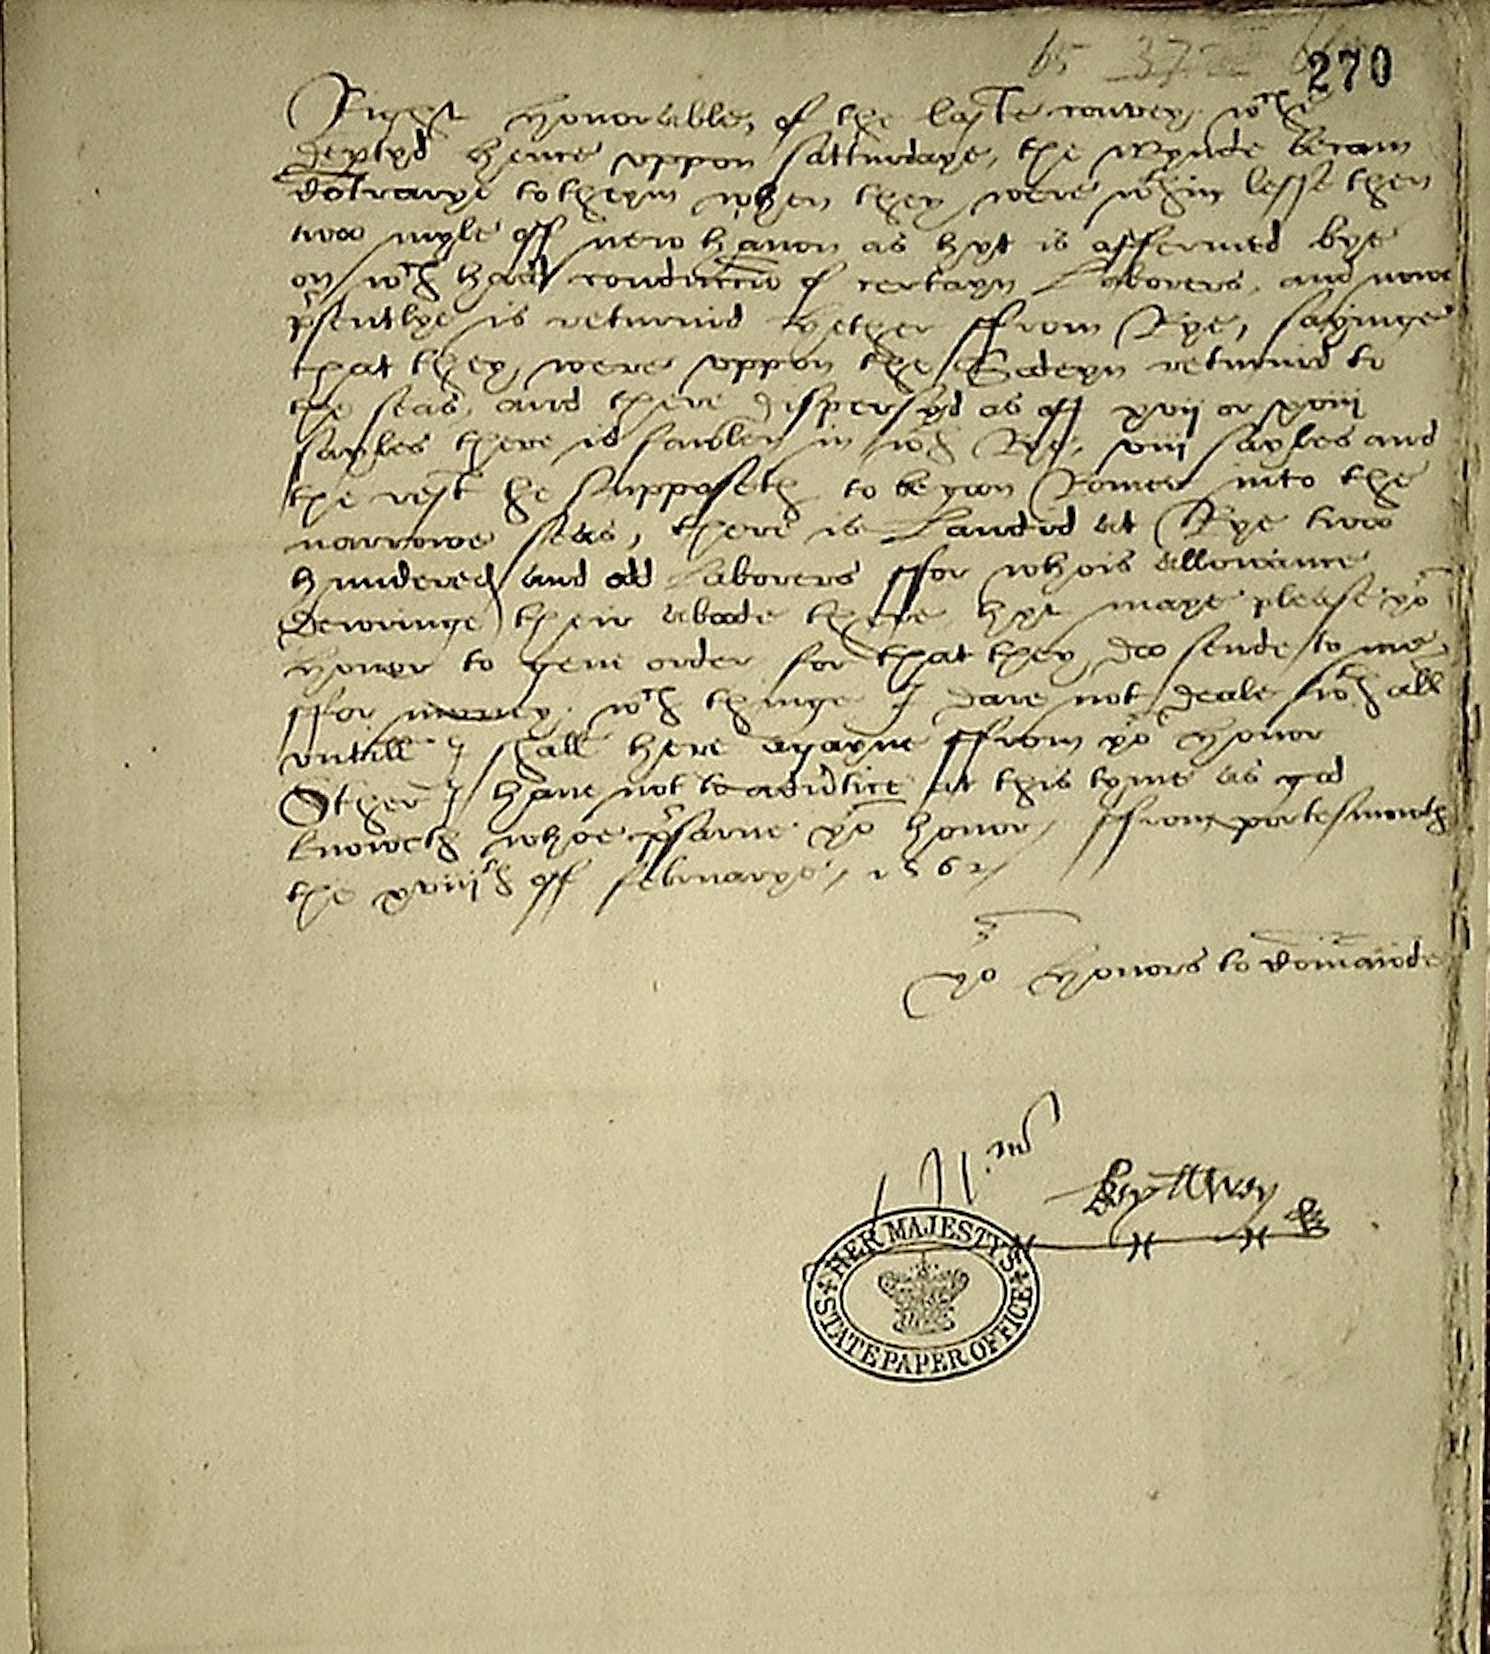 65 37 270
Right honorable, of the laste convey wch
deptyd hence uppon satturdaye, the wynde becam
cotrarye to theym when they were wthin lesse then
two myle off new haven as hyt is affermed bye
on wch hadd conduccio of certayn Laborers, and now
psentlye is returnid hether ffrom Rye, sayinge
that they were uppon the Sodeyn returnid to
the seas, and there dispersyd as off xvij or xviij
sayles there is in wth Rye, viij sayles and
the rest he supposeth to be gon into the
narrowe seas, there is Landid at Rye two
hundered and od Laborers ffor whois allowance
dewringe their abode there hyt maye please yor
honor to geve order for that they do sende to me
ffor money wch thinge I dare not deale wth all
untill I shall here agayne ffrom yor honor
Other I have not to advertice at this tyme as god
knoweth whoe psarve yor honor / ffrom portesmouth
the xviijth off februarye, 1562 /
yor honors to comaunde
Wm
Keyllwey
HER MAJESTY'S
STATE PAPER OFFICE